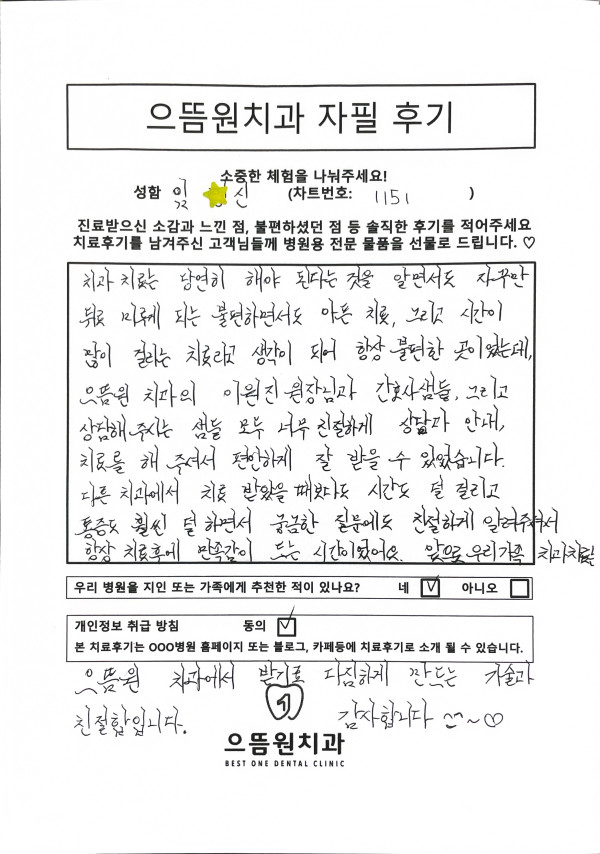 으뜸원치과 자필 후기
소중한 체험을 나눠주세요!
성함 신 (차트번호: 1151 )
진료받으신 소감과 느낀 점, 불편하셨던 점 등 솔직한 후기를 적어주세요
치료후기를 남겨주신 고객님들께 병원용 전문 물품을 선물로 드립니다. ♡
치과 치료는 당연히 해야 된다는 것을 알면서도 자꾸만
뒤로 미루게 되는 불편하면서도 아픈 치료, 그리고 시간이
많이 걸리는 치료라고 생각이 되어 항상 불편한 곳이였는데,
으뜸원 치과의 이원진 원장님과 간호사샘들, 그리고
상담해 주시는 샘들 모두 너무 친절하게 상담과 안내,
치료를 해 주셔서 편안하게 잘 받을 수 있었습니다.
다른 치과에서 치료 받았을 때보다도 시간도 덜 걸리고
통증도 훨씬 덜 하면서 궁금한 질문에도 친절하게 알려주셔서
항상 치료후에 만족감이 드는 시간이었어요. 앞으로 우리가족 치과치료는
우리 병원을 지인 또는 가족에게 추천한 적이 있나요? 네 ☑ 아니오 ☐
개인정보 취급 방침 동의 ☑
본 치료후기는 OOO병원 홈페이지 또는 블로그, 카페등에 치료후기로 소개 될 수 있습니다.
으뜸원 치과에서 받기로 다짐하게 만드는 기술과
친절함입니다. 감사합니다 ^^~♡
으뜸원치과
BEST ONE DENTAL CLINIC